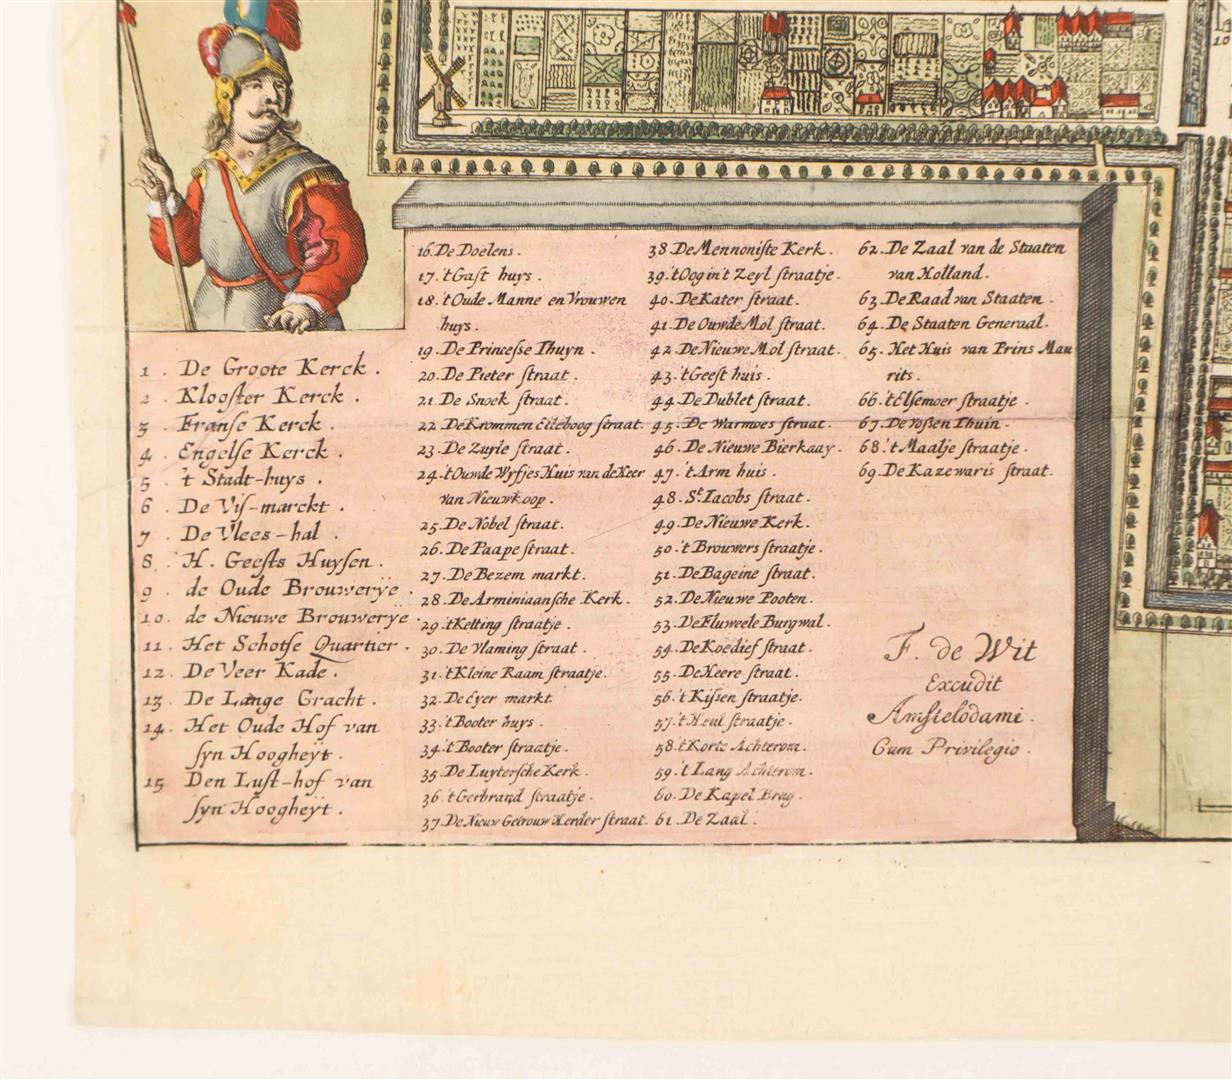 1 . De Groote Kerck .
2 . Klooster Kerck .
3 . Franse Kerck .
4 . Engelse Kerck .
5 . 't Stadt-huys .
6 . De Vis-marckt .
7 . De Vlees-hal .
8 . H. Geests Huysen .
9 . de Oude Brouwerÿe .
10 . de Nieuwe Brouwerÿe .
11 . Het Schotse Quartier .
12 . De Veer Kade .
13 . De Lange Gracht .
14 . Het Oude Hof van
syn Hoogheÿt .
15 Den Lust-hof van
syn Hoogheÿt .
16. De Doelens .
17. 't Gast huys .
18. 't Oude Manne en Vrouwen
huys .
19. De Princesse Thuyn .
20. De Pieter straat .
21. De Snoek straat .
22 De Krommen Elleboog straat.
23. De Zuyle straat .
24. 't Ouwde Wyfjes Huis van de Heer
van Nieuwkoop .
25. De Nobel straat .
26. De Paape straat .
27. De Bezem markt .
28. De Arminiaansche Kerk .
29. 't Ketting straatje .
30. De Vlaming straat .
31. 't Kleine Raam straatje .
32. De Eyer markt
33. 't Booter huys .
34. 't Booter straatje .
35. De Luytersche Kerk .
36. 't Gerbrand straatje .
37. De Nieuw Getrouw Herder straat.
38 De Mennoniste Kerk .
39. 't Oog in't Zeyl straatje .
40. De Kater straat .
41. De Ouwde Mol straat .
42. De Nieuwe Mol straat .
43. 't Geest huis .
44. De Dublet straat .
45. De Warmoes straat .
46. De Nieuwe Bierkaay .
47. 't Arm huis .
48. St. Iacobs straat .
49. De Nieuwe Kerk .
50. 't Brouwers straatje .
51. De Bageine straat .
52. De Nieuwe Pooten .
53. De Fluweele Burgwal .
54. De Koedief straat .
55. De Heere straat .
56. 't Kissen straatje .
57. 't Heul straatje .
58. 't Korte Achterom .
59. 't Lang Achterom .
60. De Kapel Brug .
61. De Zaal .
62. De Zaal van de Staaten
van Holland .
63. De Raad van Staaten .
64. De Staaten Generaal .
65. Het Huis van Prins Mau
rits .
66. 't Elsemoer straatje .
67. De Vossen Thuin .
68. 't Maalje straatje .
69. De Kazewaris straat .
F. de Wit
Excudit
Amstelodami .
Cum Privilegio .